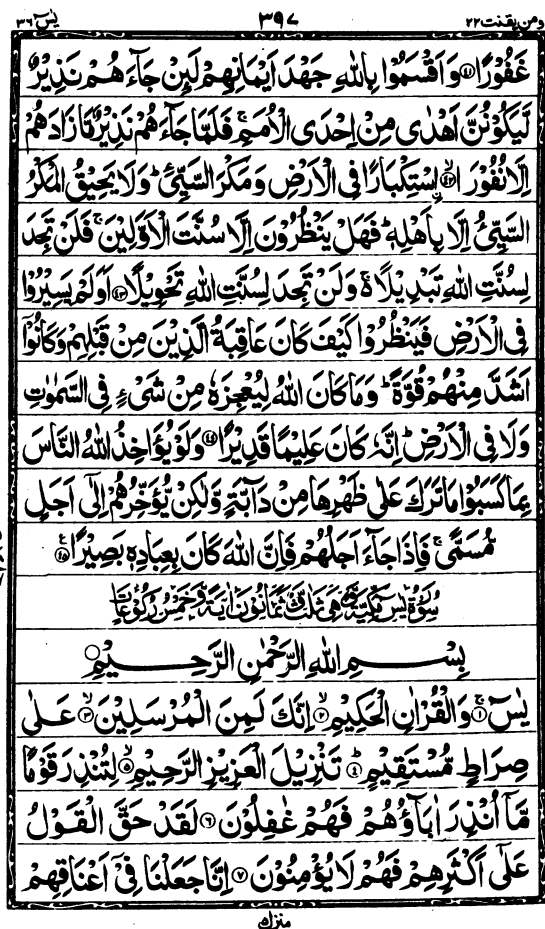 ومن یقنت ۲۲ ۳۹۷ یٰسٓ ۳۶
غَفُوْرًا ﴿۴۱﴾ وَاَقْسَمُوْا بِاللّٰهِ جَهْدَ اَيْمَانِهِمْ لَئِنْ جَآءَهُمْ نَذِيْرٌ
لَّيَكُوْنُنَّ اَهْدٰى مِنْ اِحْدَى الْاُمَمِ ۚ فَلَمَّا جَآءَهُمْ نَذِيْرٌ مَّا زَادَهُمْ
اِلَّا نُفُوْرًا ۙ﴿۴۲﴾ اسْتِكْبَارًا فِى الْاَرْضِ وَمَكْرَ السَّيِّئِ ؕ وَلَا يَحِيْقُ الْمَكْرُ
السَّيِّئُ اِلَّا بِاَهْلِهٖ ؕ فَهَلْ يَنْظُرُوْنَ اِلَّا سُنَّتَ الْاَوَّلِيْنَ ۚ فَلَنْ تَجِدَ
لِسُنَّتِ اللّٰهِ تَبْدِيْلًا ۚ۬ وَلَنْ تَجِدَ لِسُنَّتِ اللّٰهِ تَحْوِيْلًا ﴿۴۳﴾ اَوَلَمْ يَسِيْرُوْا
فِى الْاَرْضِ فَيَنْظُرُوْا كَيْفَ كَانَ عَاقِبَةُ الَّذِيْنَ مِنْ قَبْلِهِمْ وَكَانُوْٓا
اَشَدَّ مِنْهُمْ قُوَّةً ؕ وَمَا كَانَ اللّٰهُ لِيُعْجِزَهٗ مِنْ شَىْءٍ فِى السَّمٰوٰتِ
وَلَا فِى الْاَرْضِ ؕ اِنَّهٗ كَانَ عَلِيْمًا قَدِيْرًا ﴿۴۴﴾ وَلَوْ يُؤَاخِذُ اللّٰهُ النَّاسَ
بِمَا كَسَبُوْا مَا تَرَكَ عَلٰى ظَهْرِهَا مِنْ دَآبَّةٍ وَّلٰكِنْ يُّؤَخِّرُهُمْ اِلٰٓى اَجَلٍ
مُّسَمًّى ۚ فَاِذَا جَآءَ اَجَلُهُمْ فَاِنَّ اللّٰهَ كَانَ بِعِبَادِهٖ بَصِيْرًا ﴿۴۵﴾
سُوْرَةُ يٰسٓ مَكِّيَّةٌ وَّهِىَ ثَلٰثٌ وَّثَمَانُوْنَ اٰيَةً وَّخَمْسُ رُكُوْعَاتٍ
بِسْمِ اللّٰهِ الرَّحْمٰنِ الرَّحِيْمِ
يٰسٓ ۚ﴿۱﴾ وَالْقُرْاٰنِ الْحَكِيْمِ ۙ﴿۲﴾ اِنَّكَ لَمِنَ الْمُرْسَلِيْنَ ۙ﴿۳﴾ عَلٰى
صِرَاطٍ مُّسْتَقِيْمٍ ؕ﴿۴﴾ تَنْزِيْلَ الْعَزِيْزِ الرَّحِيْمِ ۙ﴿۵﴾ لِتُنْذِرَ قَوْمًا
مَّآ اُنْذِرَ اٰبَآؤُهُمْ فَهُمْ غٰفِلُوْنَ ﴿۶﴾ لَقَدْ حَقَّ الْقَوْلُ
عَلٰٓى اَكْثَرِهِمْ فَهُمْ لَا يُؤْمِنُوْنَ ﴿۷﴾ اِنَّا جَعَلْنَا فِىْٓ اَعْنَاقِهِمْ
منزل ۵